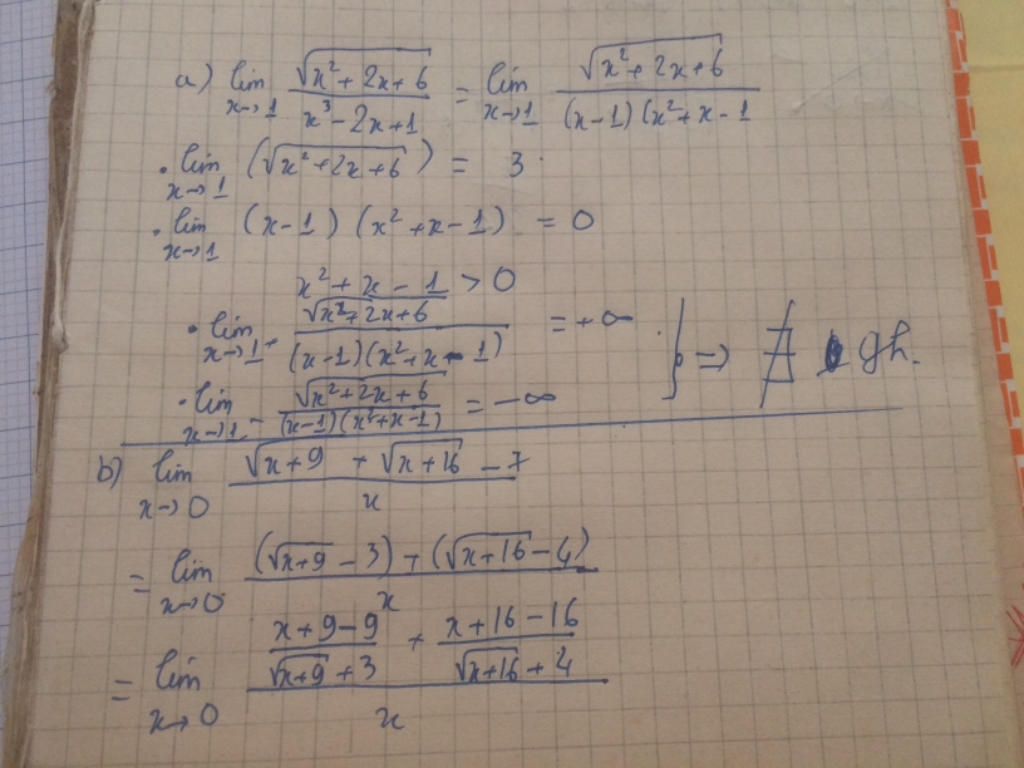 a) lim x→1 √(x² + 2x + 6) / (x³ - 2x + 1) = lim x→1 √(x² + 2x + 6) / (x-1)(x² + x - 1
• lim x→1 (√(x² + 2x + 6)) = 3
• lim x→1 (x-1) (x² + x - 1) = 0
x² + x - 1 > 0
• lim x→1⁺ √(x² + 2x + 6) / (x-1)(x² + x - 1) = +∞
• lim x→1⁻ √(x² + 2x + 6) / (x-1)(x² + x - 1) = -∞
} => ∄ gh.
b) lim x→0 (√(x+9) + √(x+16) - 7) / x
= lim x→0 ((√(x+9) - 3) + (√(x+16) - 4)) / x
= lim x→0 ((x+9-9) / (√(x+9) + 3) + (x+16-16) / (√(x+16) + 4)) / x